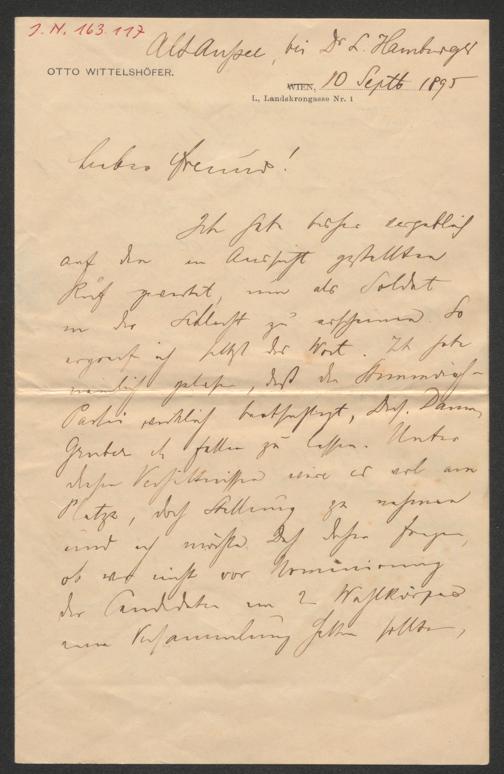 J. N. 163.117
Alt Aussee, bei Dr L. Hamburger
OTTO WITTELSHÖFER.
WIEN, 10 Septb 1895
I., Landskrongasse Nr. 1
Lieber Freund!
Ich habe bisher vergeblich
auf den in Aussicht gestellten
Ruf gewartet, um als Soldat
in der Schlacht zu erscheinen. So
ergreif ich selbst das Wort. Ich habe
nämlich gelesen, daß die
Partei wirklich beabsichtigt, Dich,
Gruber etc fallen zu lassen. Unter
diesen Verhältnissen wäre es wol am
Platze, doch Stellung zu nehmen
und ich möchte Dich daher fragen,
ob wir nicht vor Nominierung
der Candidaten im 2 Wahlkörper
eine Versammlung halten sollten,